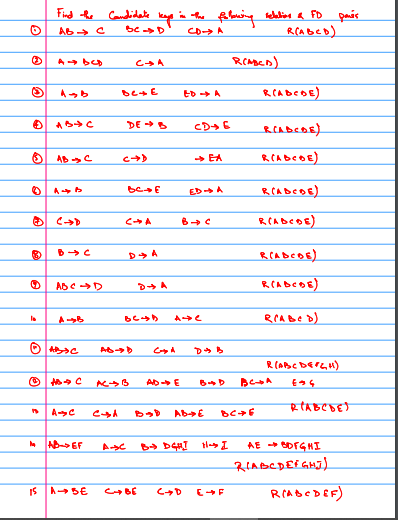 Find the Candidate keys in the following relation & FD pairs
① AB → C BC → D CD → A R(ABCD)
② A → BCD C → A R(ABCD)
③ A → B BC → E ED → A R(ABCDE)
④ AB → C DE → B CD → E R(ABCDE)
⑤ AB → C C → D → EA R(ABCDE)
⑥ A → B BC → E ED → A R(ABCDE)
⑦ C → D C → A B → C R(ABCDE)
⑧ B → C D → A R(ABCDE)
⑨ ABC → D D → A R(ABCDE)
10 A → B BC → D A → C R(ABCD)
⑪ AB → C AB → D C → A D → B
R(ABCDEFGH)
⑫ AB → C AC → B AD → E B → D BC → A E → G
13 A → C C → A B → D AD → E BC → E R(ABCDE)
14 AB → EF A → C B → DGHI H → I AE → BDFGHI
R(ABCDEFGHI)
15 A → BE C → BE C → D E → F R(ABCDEF)